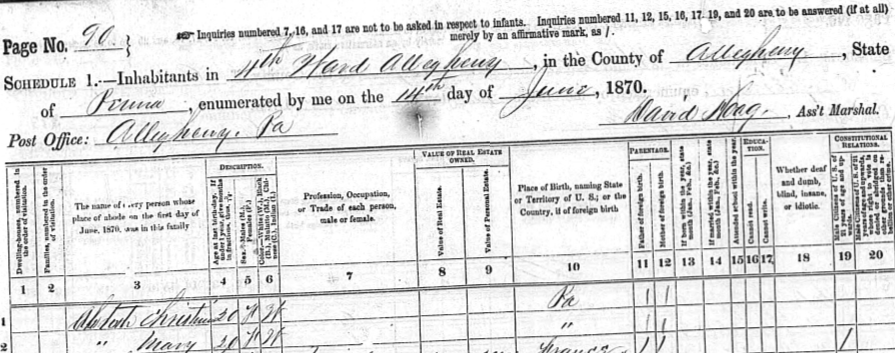 Page No. 90.
Inquiries numbered 7, 16, and 17 are not to be asked in respect to infants. Inquiries numbered 11, 12, 15, 16, 17, 19, and 20 are to be answered (if at all)
merely by an affirmative mark, as /.
SCHEDULE 1.—Inhabitants in 4th Ward Allegheny, in the County of Allegheny, State
of Penna, enumerated by me on the 14th day of June, 1870.
Post Office: Allegheny, Pa
David, Ass't Marshal.
Dwelling-houses, numbered in the order of visitation.
Families, numbered in the order of visitation.
The name of every person whose place of abode on the first day of June, 1870, was in this family
DESCRIPTION.
Age at last birth-day. If under 1 year, give months in fractions, thus
Sex.—Males (M.), Females (F.)
Color.—White (W.), Black (B.), Mulatto (M.), Chinese (C.), Indian (I.)
Profession, Occupation, or Trade of each person, male or female.
VALUE OF REAL ESTATE OWNED.
Value of Real Estate.
Value of Personal Estate.
Place of Birth, naming State or Territory of U. S.; or the Country, if of foreign birth
PARENTAGE.
Father of foreign birth.
Mother of foreign birth.
If born within the year, state month (Jan., Feb., &c.)
If married within the year, state month (Jan., Feb., &c.)
Attended school within the year.
EDUCATION.
Cannot read.
Cannot write.
Whether deaf and dumb, blind, insane, or idiotic.
CONSTITUTIONAL RELATIONS.
Male Citizens of U. S. of 21 years of age and upwards.
Male Citizens of U. S. of 21 years of age and upwards, whose right to vote is denied or abridged on other grounds than rebellion or other crime.
1 2 3 4 5 6 7 8 9 10 11 12 13 14 15 16 17 18 19 20
1 Christin 20 Pa / /
2 " Mary 20 " / /
France / / /